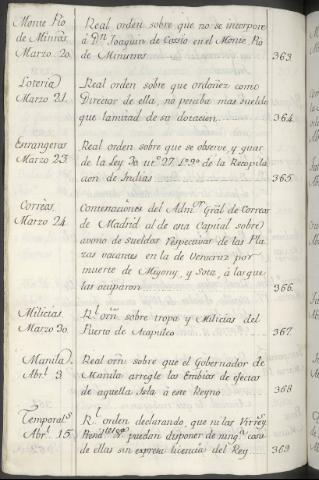 Monte Pio
de Minros
Marzo. 20.
Real orden sobre que no se incorpore
á Dn. Joaquin de Cossio en el Monte Pio
de Ministros
363.
Loteria
Marzo 21.
Real orden sobre que ordoñez como
Director de ella, no perciba mas sueldo
que la mitad de su dotacion
364.
Estrangeros
Marzo 23
Real orden sobre que se observe, y guar
de la Ley 30 titº 27 Lº 9º de la Recopila
cion de Indias
365.
Correos
Marzo 24
Contestaciones del Admor. Gral de Correos
de Madrid al de esta Capital sobre
avono de sueldos respectivos de las Pla
zas vacantes en la de Veracruz por
muerte de Migony, y Soto, á los que
las ocuparon
366.
Milicias
Marzo 30.
Rl orn sobre tropa y Milicias del
Puerto de Acapulco
367.
Manila
Abrl. 3
Real orn sobre que el Governador de
Manila arregle los Embios de efectos
de aquella Isla á este Reyno
368
Temporals
Abrl. 15
Rl orden declarando, que ni los Virreys
puedan disponer de ninga. cosa
de ellas sin expresa licencia del Rey
369